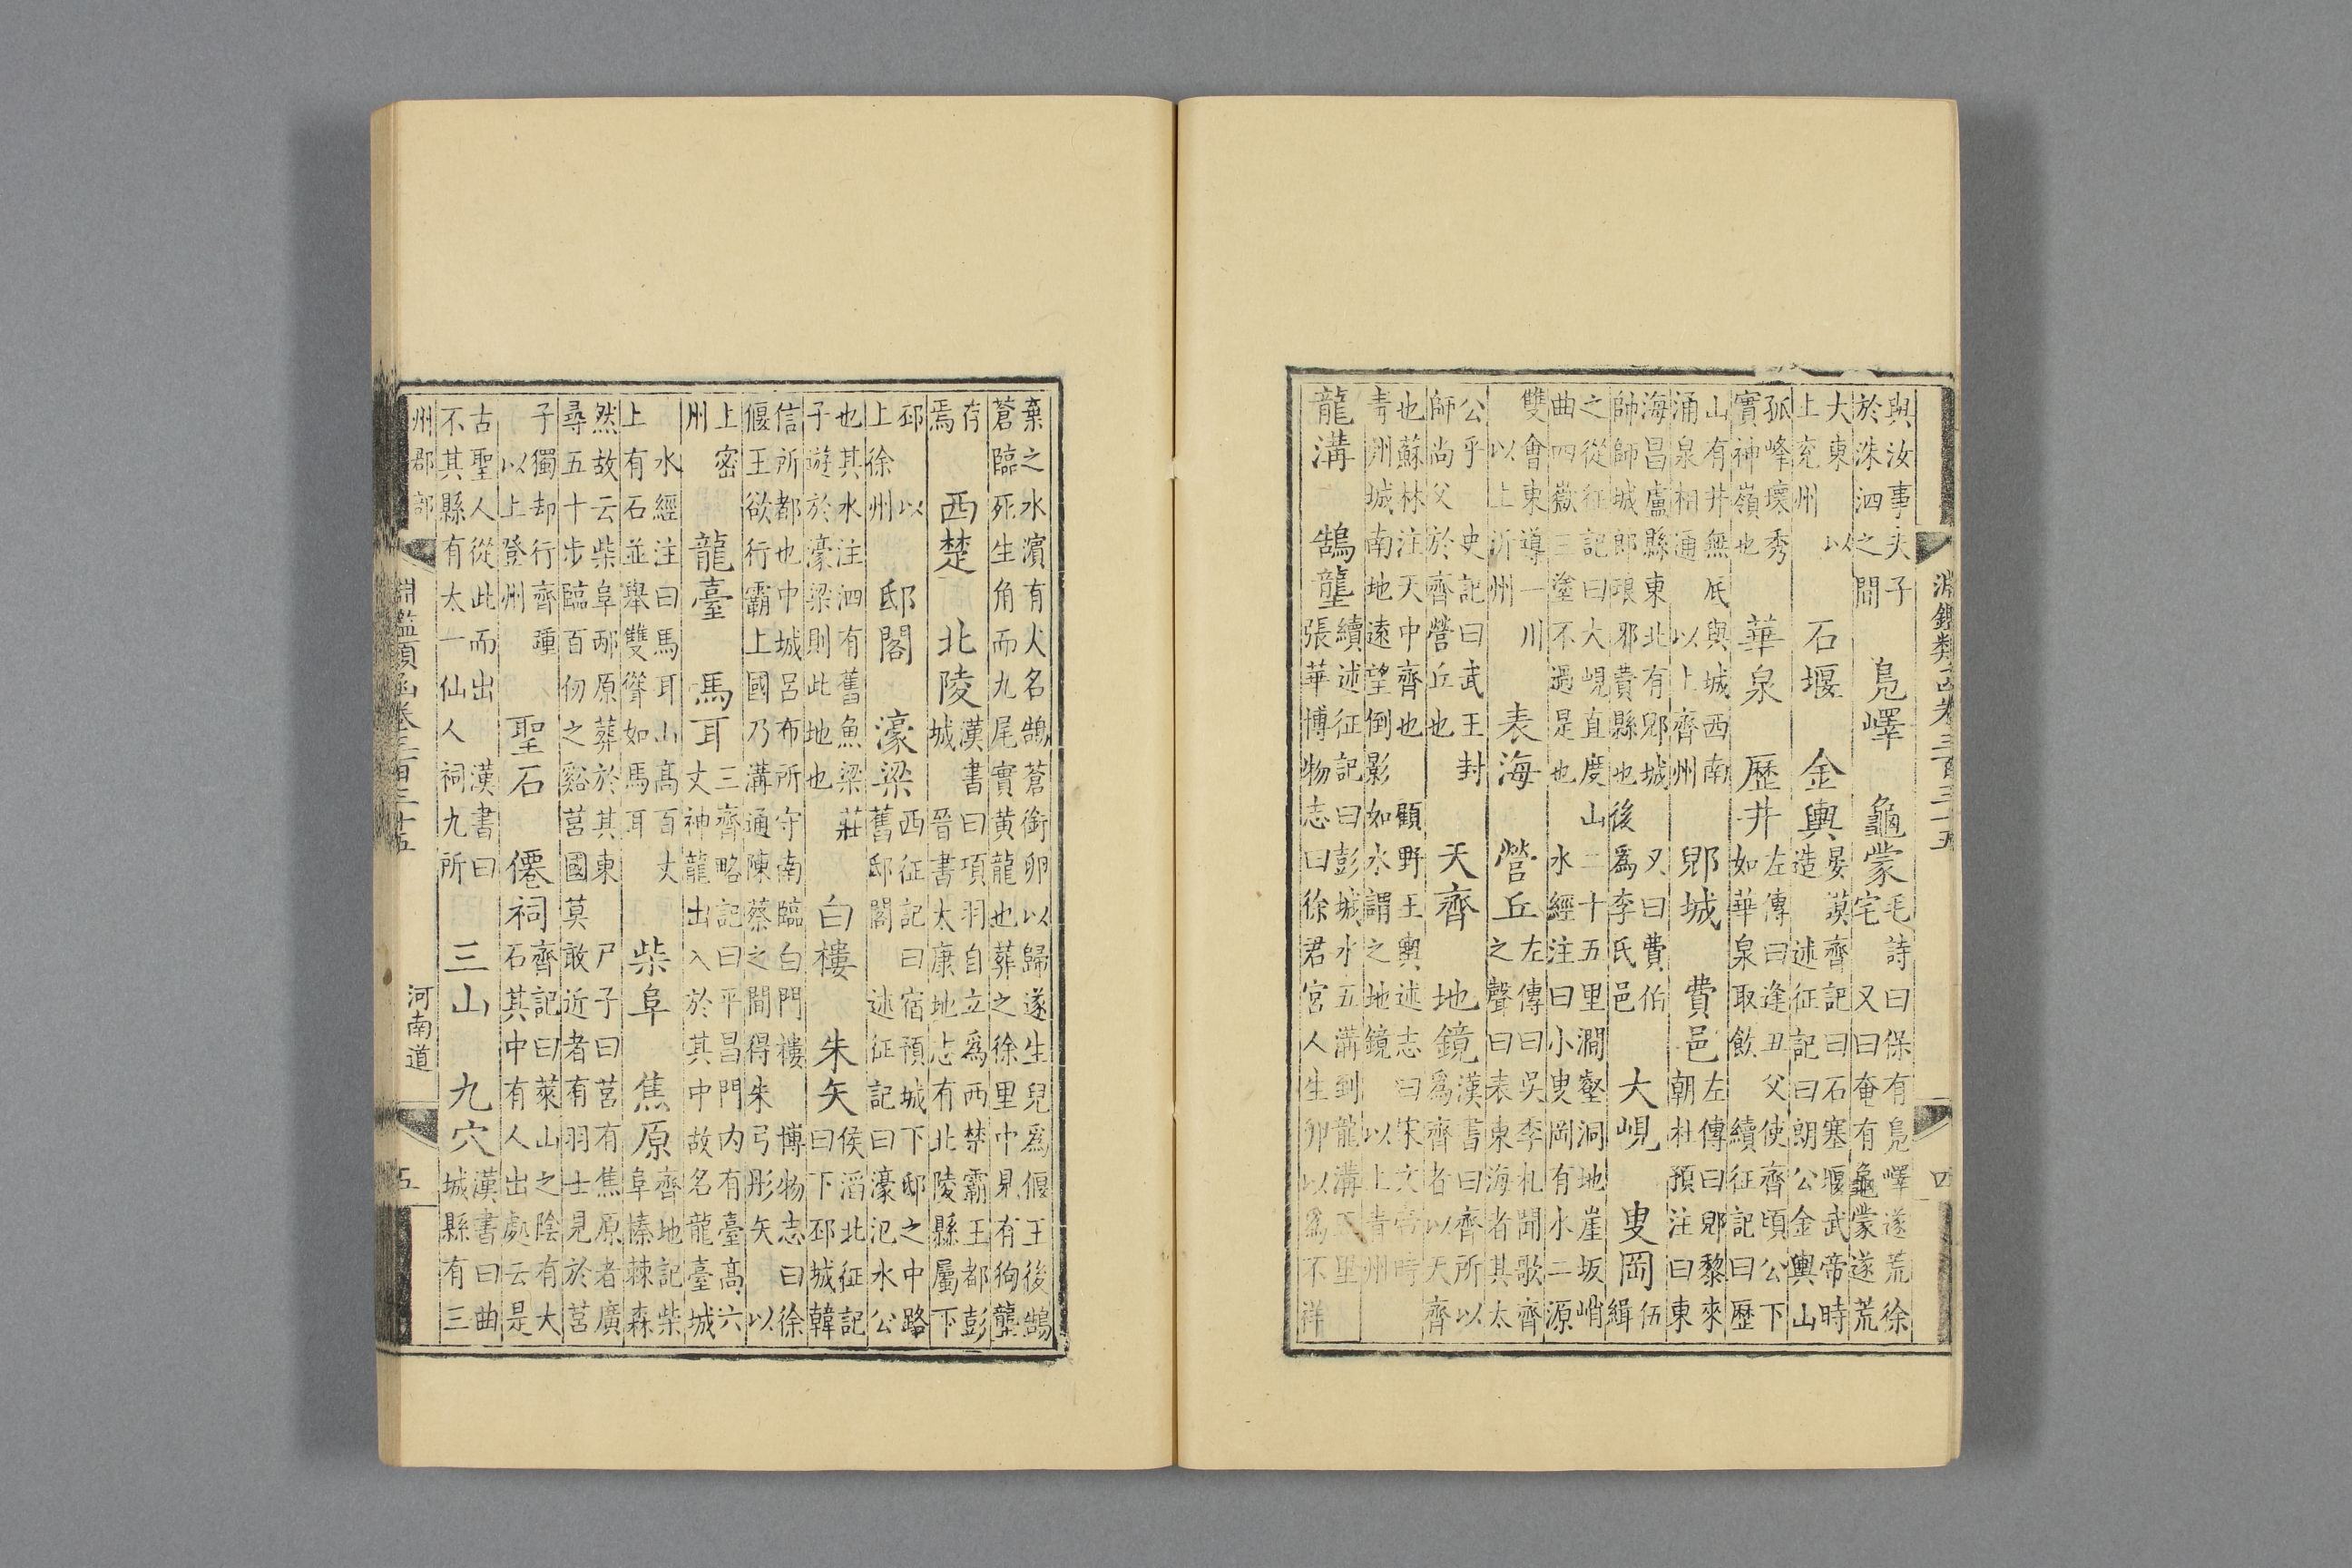 淵鑑類函卷三百三十五
四
與汝事夫子
於洙泗之間
鳧嶧 龜蒙
毛詩曰保有鳧嶧遂荒徐
宅 又曰奄有龜蒙遂荒
大東 以
上兖州
石堰 金輿
晏謨齊記曰石塞堰武帝時
造 述征記曰朗公金輿山
孤峰壞秀
實神嶺也
華泉 歷井
左傳曰逢丑父使齊頃公下
如華泉取飲 續征記曰歷
山有井無底與城西南
涌泉相通 以上齊州
郳城 費邑
左傳曰郳黎來
朝杜預注曰東
海昌盧縣東北有郳城 又曰費伯
帥師城郎琅邪費縣也後爲李氏邑
大峴 叟岡
伍
緝
之從征記曰大峴直度山二十五里澗壑洞地崖坂峭
曲四嶽三塗不遇是也 水經注曰小叟岡有水二源
雙會東導一川
以上沂州
表海 營丘
左傳曰吳季札聞歌齊
之聲曰表東海者其太
公乎 史記曰武王封
師尚父於齊營丘也
天齊 地鏡
漢書曰齊所以
爲齊者以天齊
也蘇林注天中齊也 顧野王輿述志曰宋文帝時
青州城南地遠望倒影如水謂之地鏡 以上青州
龍溝 鵠壟
續述征記曰彭城水五溝到龍溝下里
張華博物志曰徐君宮人生卵以爲不祥
棄之水濱有犬名鵠蒼銜卵以歸遂生兒爲偃王後鵠
蒼臨死生角而九尾實黄龍也葬之徐里中見有狗壟
存
焉
西楚 北陵
漢書曰項羽自立爲西楚霸王都彭
城 晉書太康地志有北陵縣屬下
邳 以
上徐州
邸閣 濠梁
西征記曰宿預城下邸之中路
舊邸閣 述征記曰濠汜水公
也其水注泗有舊魚梁莊
子遊於濠梁則此地也
白樓 朱矢
侯滔北征記
曰下邳城韓
信所都也中城呂布所守南臨白門樓 博物志曰徐
偃王欲行霸上國乃溝通陳蔡之間得朱弓彤矢 以
上密
州
龍臺 馬耳
三齊略記曰平昌門内有臺高六
丈神龍出入於其中故名龍臺城
水經注曰馬耳山高百丈
上有石並舉雙聳如馬耳
柴阜 焦原
齊地記柴
阜榛棘森
然故云柴阜邴原葬於其東 尸子曰莒有焦原者廣
尋五十步臨百仞之谿莒國莫敢近者有羽士見於莒
子獨却行齊踵
以上登州
聖石 僊祠
齊記曰萊山之陰有大
石其中有人出處云是
古聖人從此而出 漢書曰
不其縣有太一仙人祠九所
三山 九穴
漢書曰曲
城縣有三
淵鑑類函卷三百三十五
河南道
五